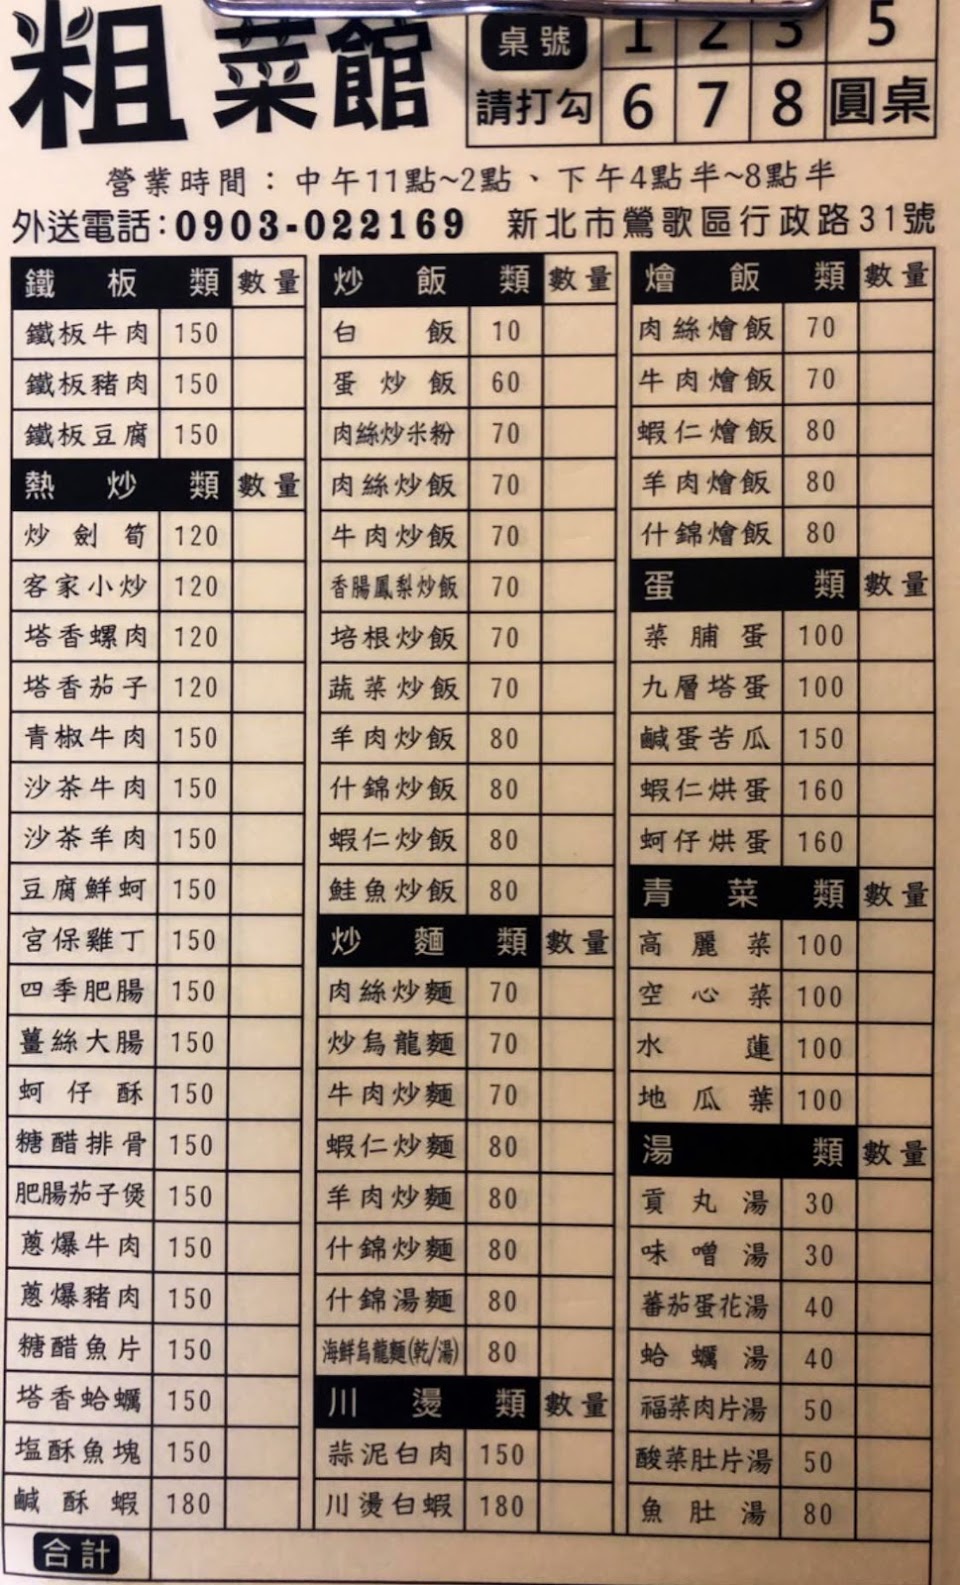 粗菜館
桌號 1 2 3 5
請打勾 6 7 8 圓桌
營業時間：中午11點~2點、下午4點半~8點半
外送電話:0903-022169 新北市鶯歌區行政路31號
鐵板類 數量
鐵板牛肉 150
鐵板豬肉 150
鐵板豆腐 150
熱炒類 數量
炒劍筍 120
客家小炒 120
塔香螺肉 120
塔香茄子 120
青椒牛肉 150
沙茶牛肉 150
沙茶羊肉 150
豆腐鮮蚵 150
宮保雞丁 150
四季肥腸 150
薑絲大腸 150
蚵仔酥 150
糖醋排骨 150
肥腸茄子煲 150
蔥爆牛肉 150
蔥爆豬肉 150
糖醋魚片 150
塔香蛤蠣 150
塩酥魚塊 150
鹹酥蝦 180
合計
炒飯類 數量
白飯 10
蛋炒飯 60
肉絲炒米粉 70
肉絲炒飯 70
牛肉炒飯 70
香腸鳳梨炒飯 70
培根炒飯 70
蔬菜炒飯 70
羊肉炒飯 80
什錦炒飯 80
蝦仁炒飯 80
鮭魚炒飯 80
炒麵類 數量
肉絲炒麵 70
炒烏龍麵 70
牛肉炒麵 70
蝦仁炒麵 80
羊肉炒麵 80
什錦炒麵 80
什錦湯麵 80
海鮮烏龍麵(乾/湯) 80
川燙類 數量
蒜泥白肉 150
川燙白蝦 180
燴飯類 數量
肉絲燴飯 70
牛肉燴飯 70
蝦仁燴飯 80
羊肉燴飯 80
什錦燴飯 80
蛋類 數量
菜脯蛋 100
九層塔蛋 100
鹹蛋苦瓜 150
蝦仁烘蛋 160
蚵仔烘蛋 160
青菜類 數量
高麗菜 100
空心菜 100
水蓮 100
地瓜葉 100
湯類 數量
貢丸湯 30
味噌湯 30
蕃茄蛋花湯 40
蛤蠣湯 40
福菜肉片湯 50
酸菜肚片湯 50
魚肚湯 80